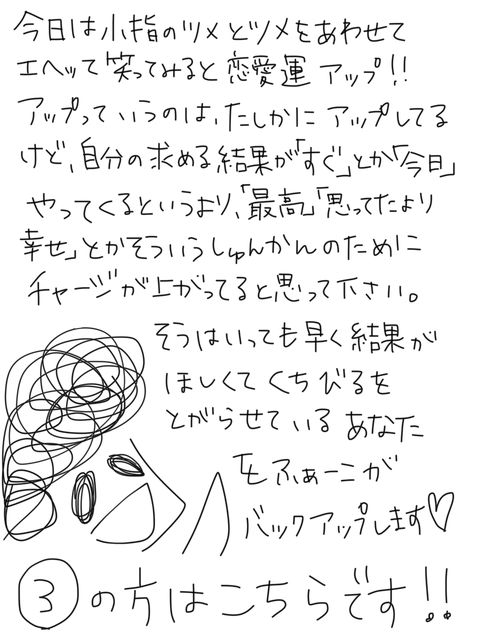 今日は小指のツメとツメをあわせて
エヘッて笑ってみると恋愛運アップ!!
アップっていうのは、たしかにアップしてる
けど、自分の求める結果が「すぐ」とか「今日」
やってくるというより、「最高」「思ってたより
幸せ」とかそういうしゅんかんのために
チャージが上がってると思って下さい。
そうはいっても早く結果が
ほしくてくちびるを
とがらせているあなた
をふぁーこが
バックアップします♡
③の方はこちらです!!